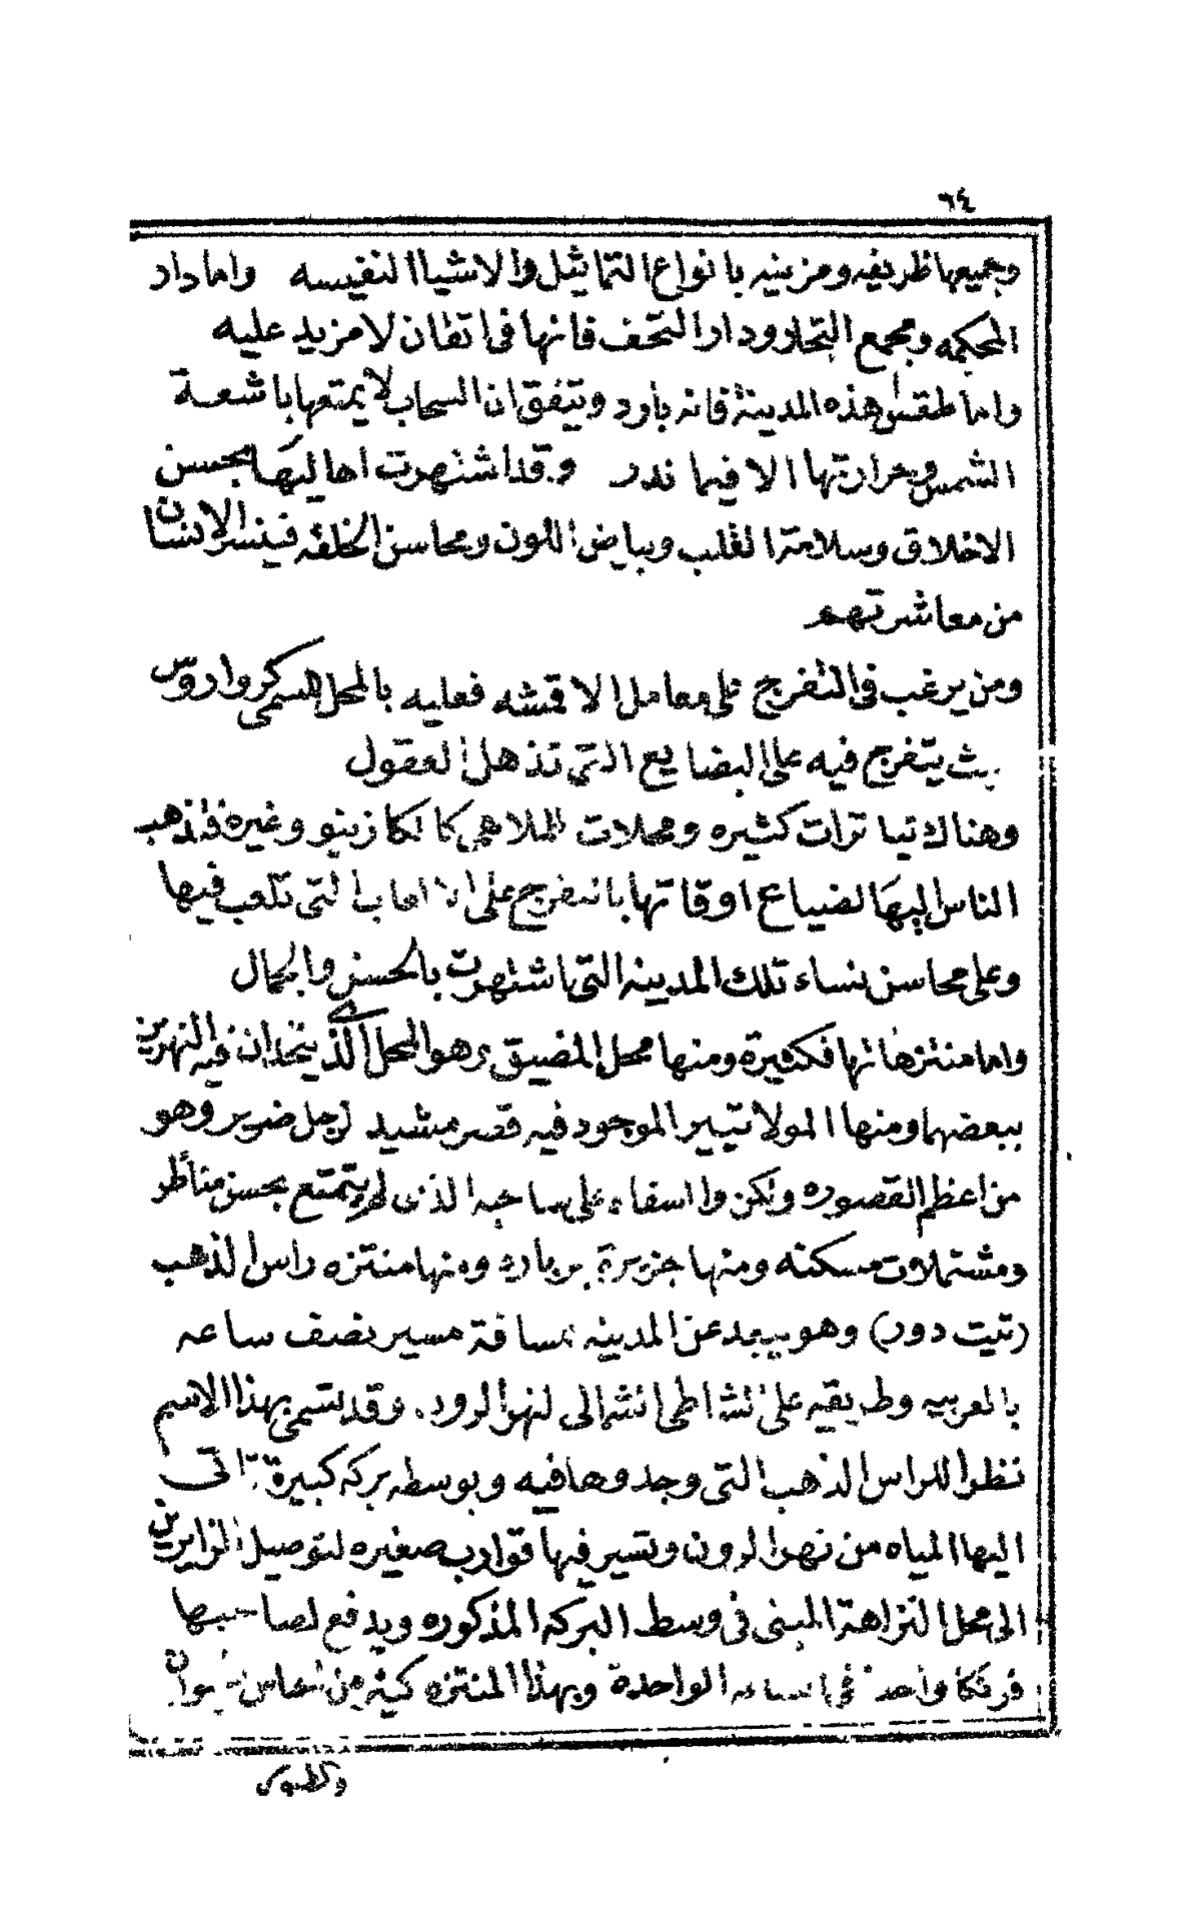 ٦٤
وجميعها ظريفه ومزينه بانواع التماثيل والاشياا النفيسه واما دار
المحكمه ومجمع التجار ودار التحف فانها فى اتقان لا مزيد عليه
واما طقس هذه المدينة فانه بارد ويتفق ان السحاب لا يمتعها باشعة
الشمس وحرارتها الا فيما ندر وقد اشتهرت اهاليها بحسن
الاخلاق وسلامة القلب وبياض اللون ومحاسن الخلقه فينسر الانسان
من معاشرتهم
ومن يرغب فى التفرج على معامل الاقشه فعليه بالمحل المسمى كرواروس
يث يتفرج فيه على البضايع التى تذهل العقول
وهناك تياترات كثيره ومحلات للملاهى كالكازينو وغيره فتذهب
الناس اليها لضياع اوقاتها بالتفرج على الالعاب التى تلعب فيها
وعلى محاسن نساء تلك المدينه التى اشتهرت بالحسن والجمال
واما منتزهاتها فكثيرة ومنها محل المضيق وهو المحل الذى يتحدان فيه النهرين
ببعضهما ومنها المولاتيير الموجود فيه قصر مشيد لرجل ضرير وهو
من اعظم القصوره ولكن وا اسفاه على صاحبه الذى لم يتمتع بحسن مناظر
ومشتملات مسكنه ومنها جزيرة برباره ومنها منتزه راس الذهب
(تيت دور) وهو يبعد عن المدينه مسافة مسير نصف ساعه
بالعربيه وطريقه على الشاطى الشمالى لنهر الرود. وقد تسمى بهذا الاسم
نظرا للراس الذهب التى وجدوها فيه وبوسطه بركه كبيرة تاتى
اليها المياه من نهر الرون وتسير فيها قوارب صغيره لتوصيل الزايرين
الى محل النزاهة المبنى فى وسط البركه المذكوره ويدفع لصاحبها
فرنكا واحدا فى الساعه الواحدة وبهذا المنتزه كثير من اجناس الحيوان
والطيور